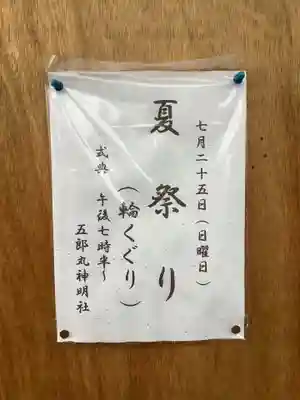 七月二十五日(日曜日)
夏祭り
(輪くぐり)
式典 午後七時半~
五郎丸神明社